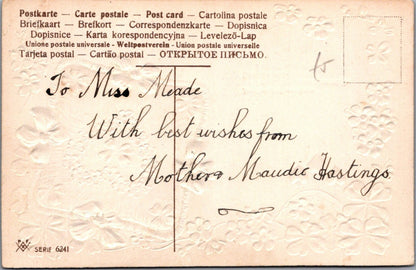 Postkarte — Carte postale — Post card — Cartolina postale
Briefkaart — Brefkort — Correspondenzkarte — Dopisnica
Dopisnice — Karta korespondencyjna — Levelező-Lap
Unione postale universale - Weltpostverein - Union postale universelle
Tarjeta postal — Cartão postal — ОТКРЫТОЕ ПИСЬМО.
To Miss Meade
With best wishes from
Mother & Maudie Hastings
SERIE 6241